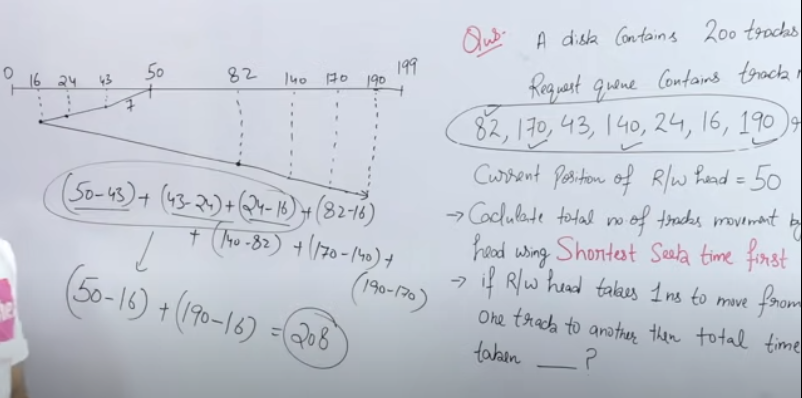 0 16 24 43 50 82 140 170 190 199
7
(50-43) + (43-24) + (24-16) + (82-16)
+ (140-82) + (170-140) +
(190-170)
(50-16) + (190-16) = 208
Qus. A disk Contains 200 tracks
Request queue Contains track
82, 170, 43, 140, 24, 16, 190
Current Position of R/w head = 50
→ Caclulate total no. of tracks movement by
head using Shortest Seek time first
→ if R/w head takes 1ns to move from
one track to another then total time
taken ___ ?